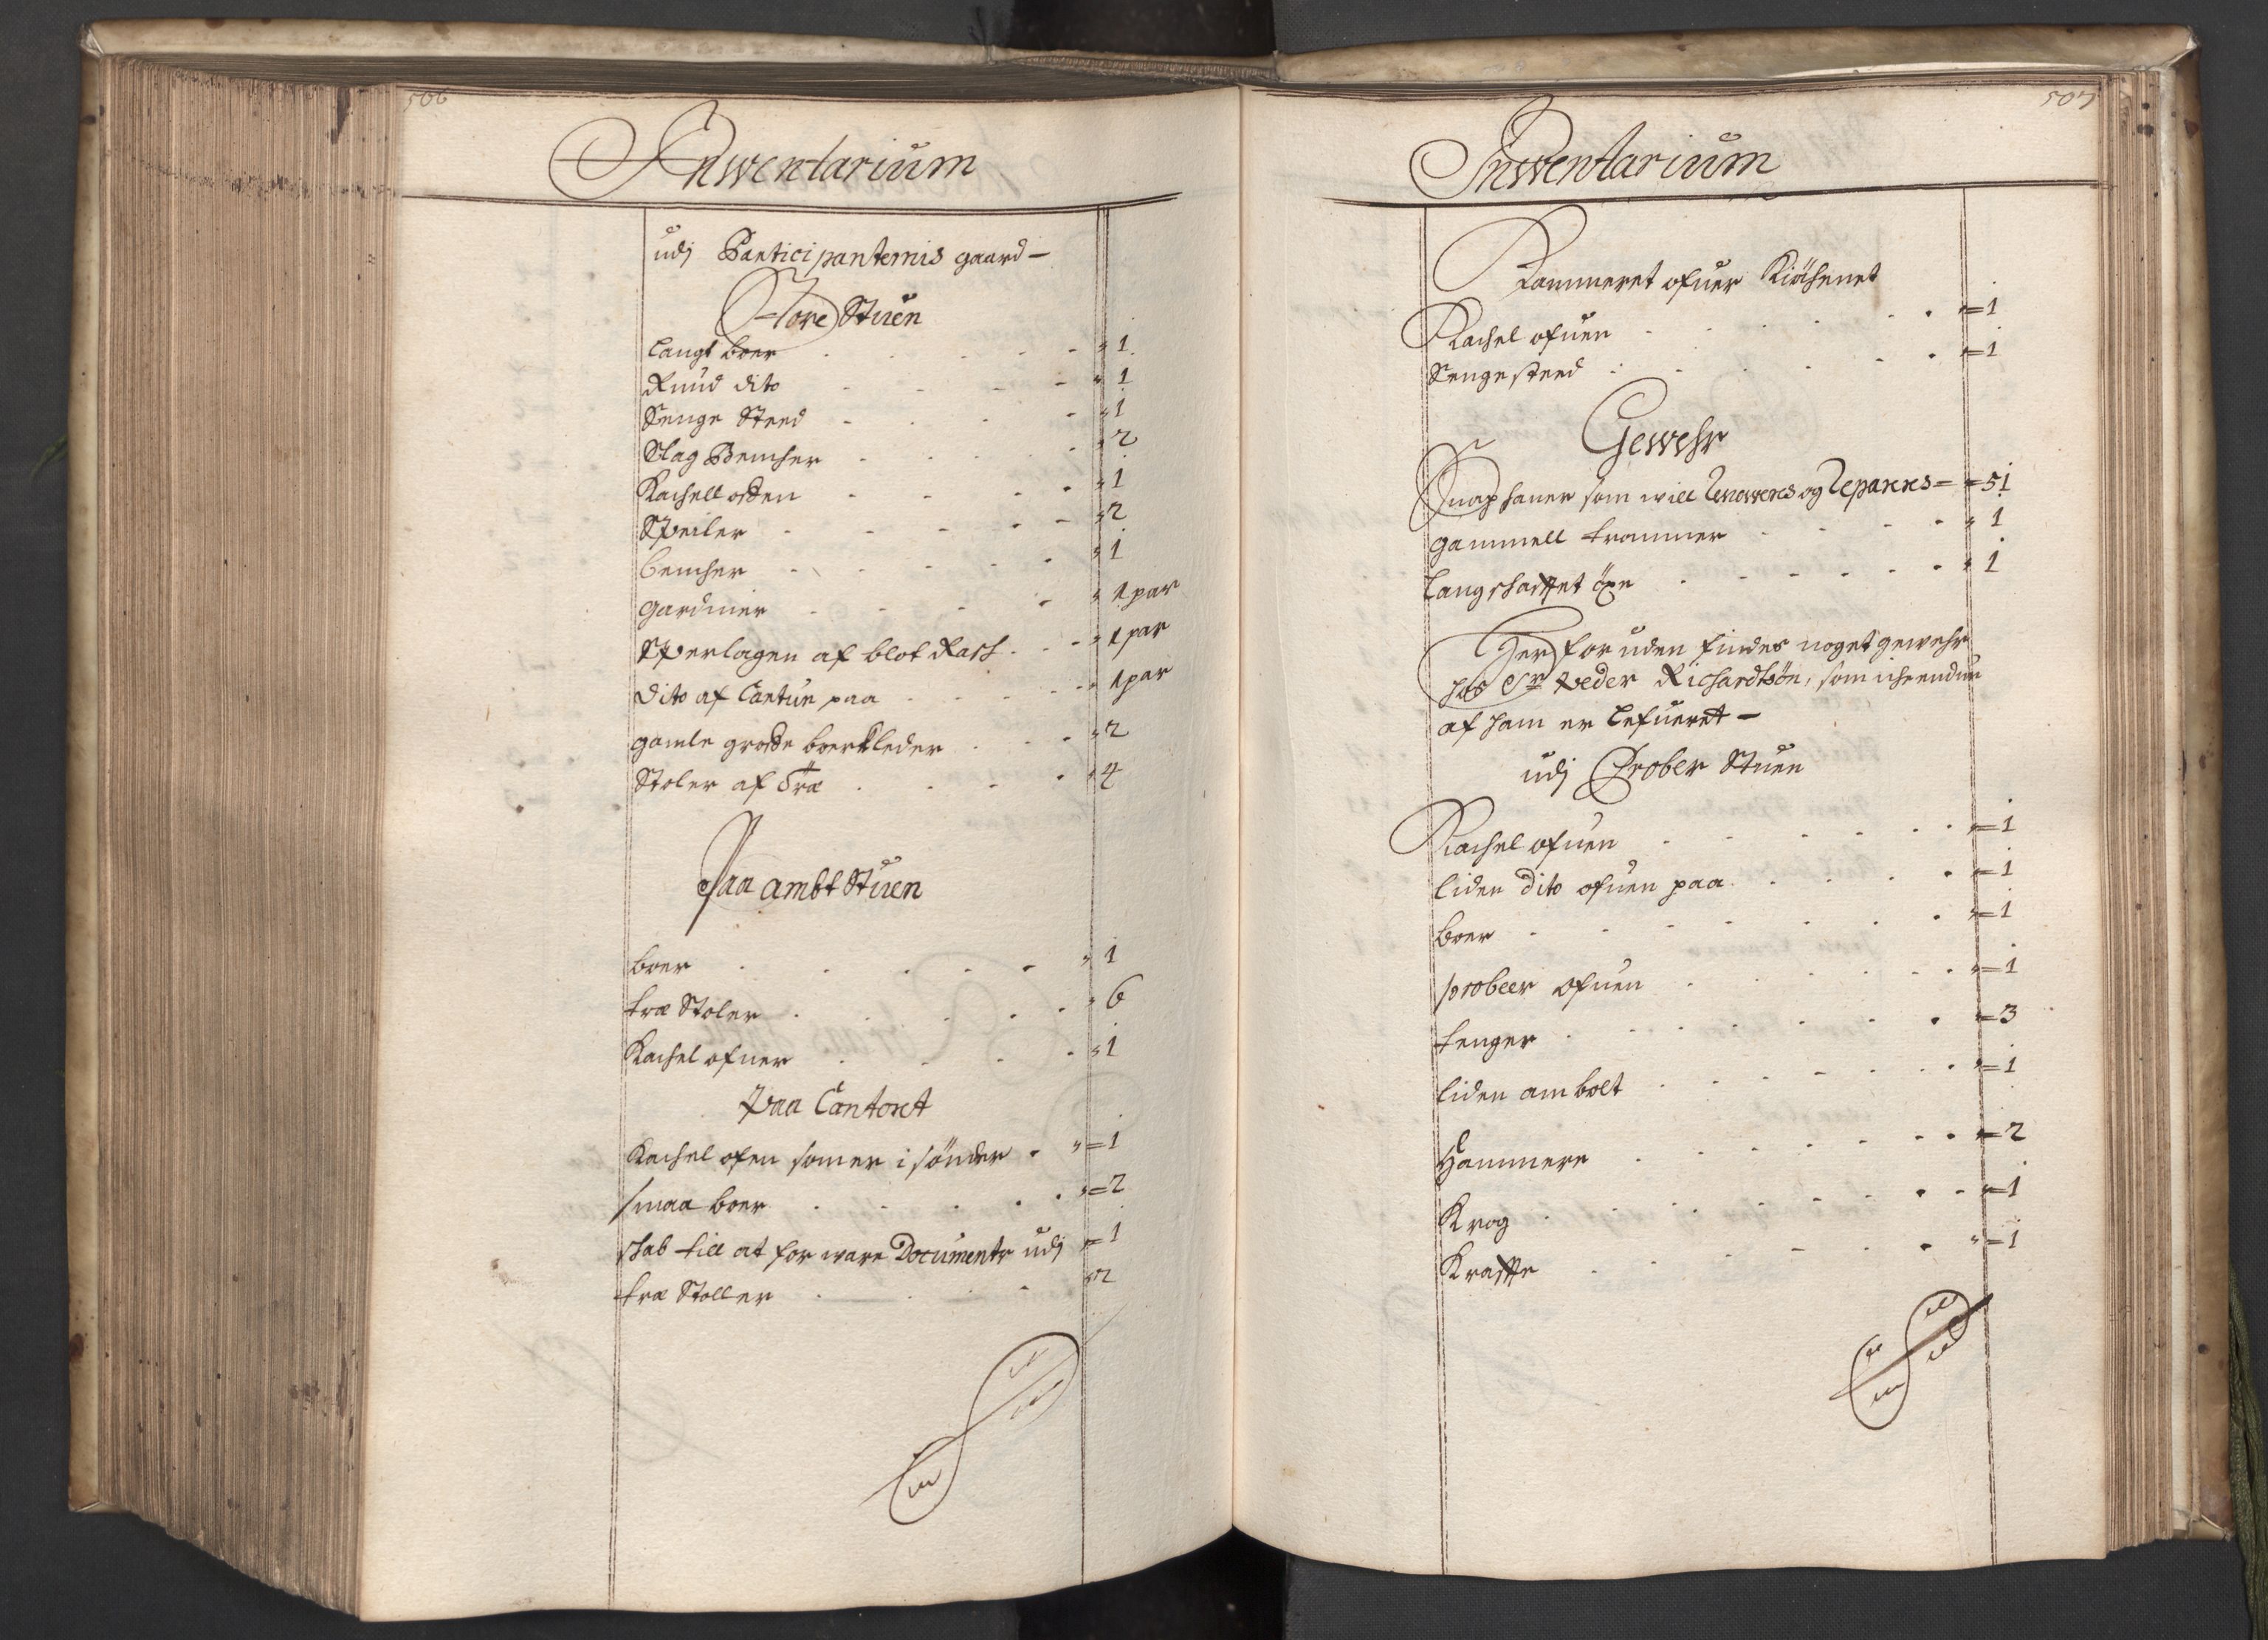 506
Inventarium
udj Participanternis gaard -
Store Stuen
langt boer 1
Rund dito 1
Senge Steed 1
Slag Bencher 2
Kachell offen 1
Speiler 2
bencher 1
gardiner 1 par
Sperlagen af blot Rask 1 par
dito af Cartun paa 1 par
gamle grofve boerkleder 2
Stoler af Træ 4
Paa ambt Stuen
boer 1
træ Stoler 6
Kachel ofner 1
Paa Cantoret
Kachel ofen som er i sønder =1
smaa boer =2
skab till at forware Documenter udj =1
træ Stoller 2
507
Inventarium
Kammeret ofuer Kiøkenet
Kachel ofuen =1
Sengesteed =1
Gewehr
Snaphaner som will Renoveres og Repareres = =51
gammell trommer 1
langskafftet öxe 1
Her foruden findes noget gewehr
hos Sr Peder Richardtsön, som icke endnu
af ham er lefueret -
udj Prober Stuen
Kachel ofuen =1
liden dito ofuen paa =1
boer =1
probeer ofuen =1
tenger =3
liden ambolt =1
Hammere =2
Krog =1
Kratze =1